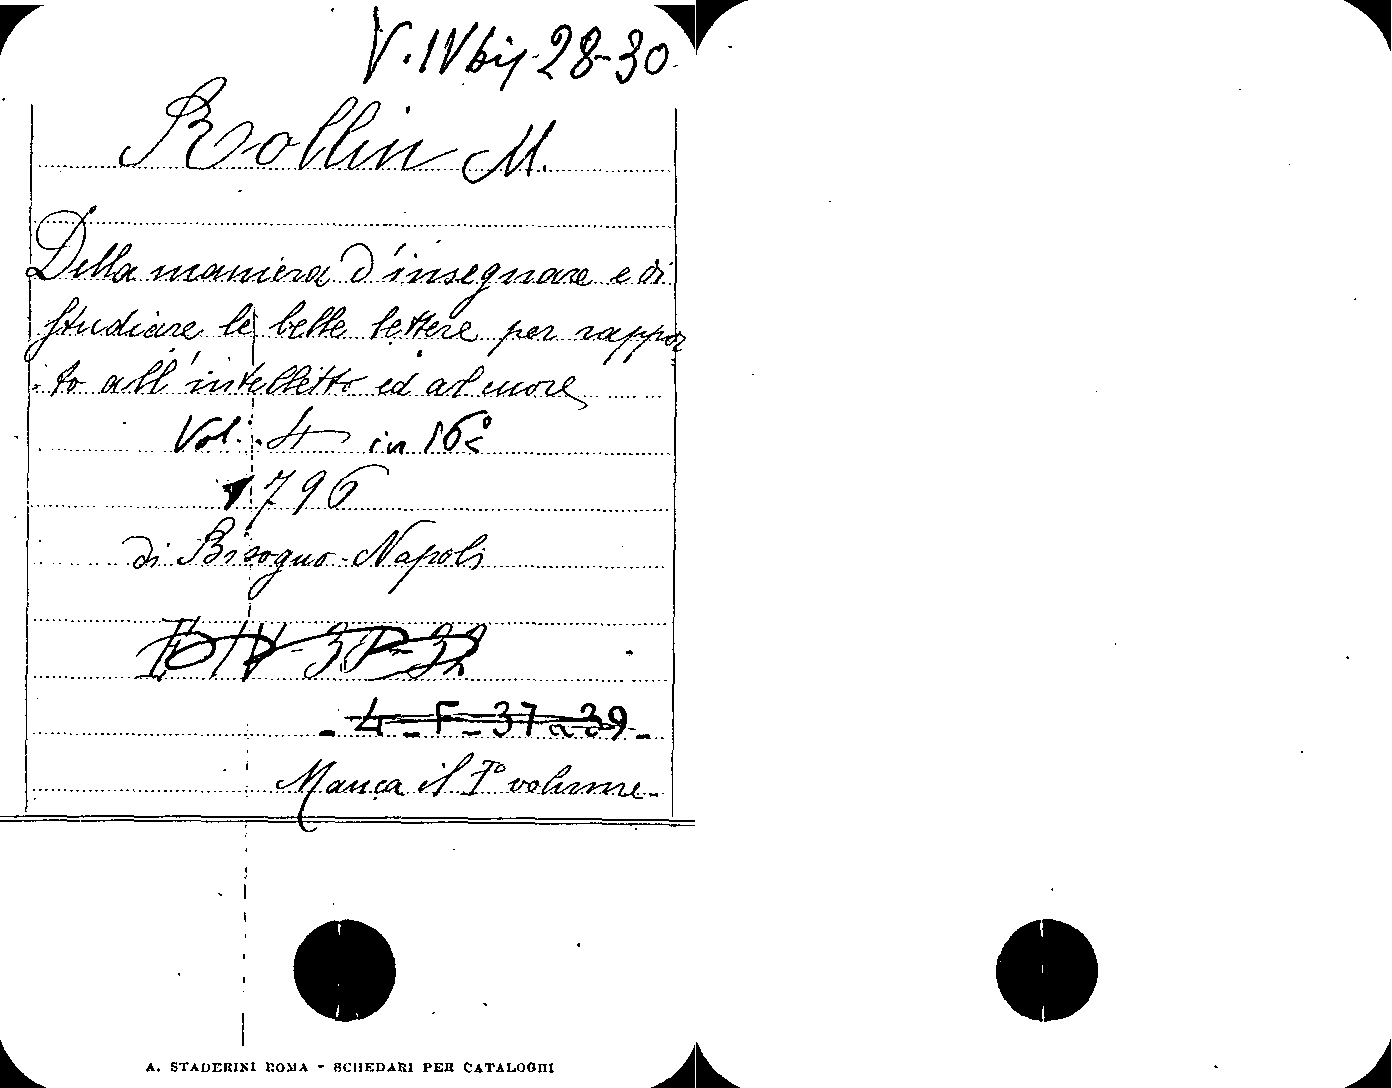 V. IV bis 28-30
Rollin M.
Della maniera d'insegnare e di
studiare le belle lettere per rappor
to all'intelletto ed al cuore
Vol. 4 in 16°
1796
di Bisogno - Napoli
- 4 - F - 37 a 39 -
Manca il I° volume -
A. STADERINI ROMA - SCHEDARI PER CATALOGHI